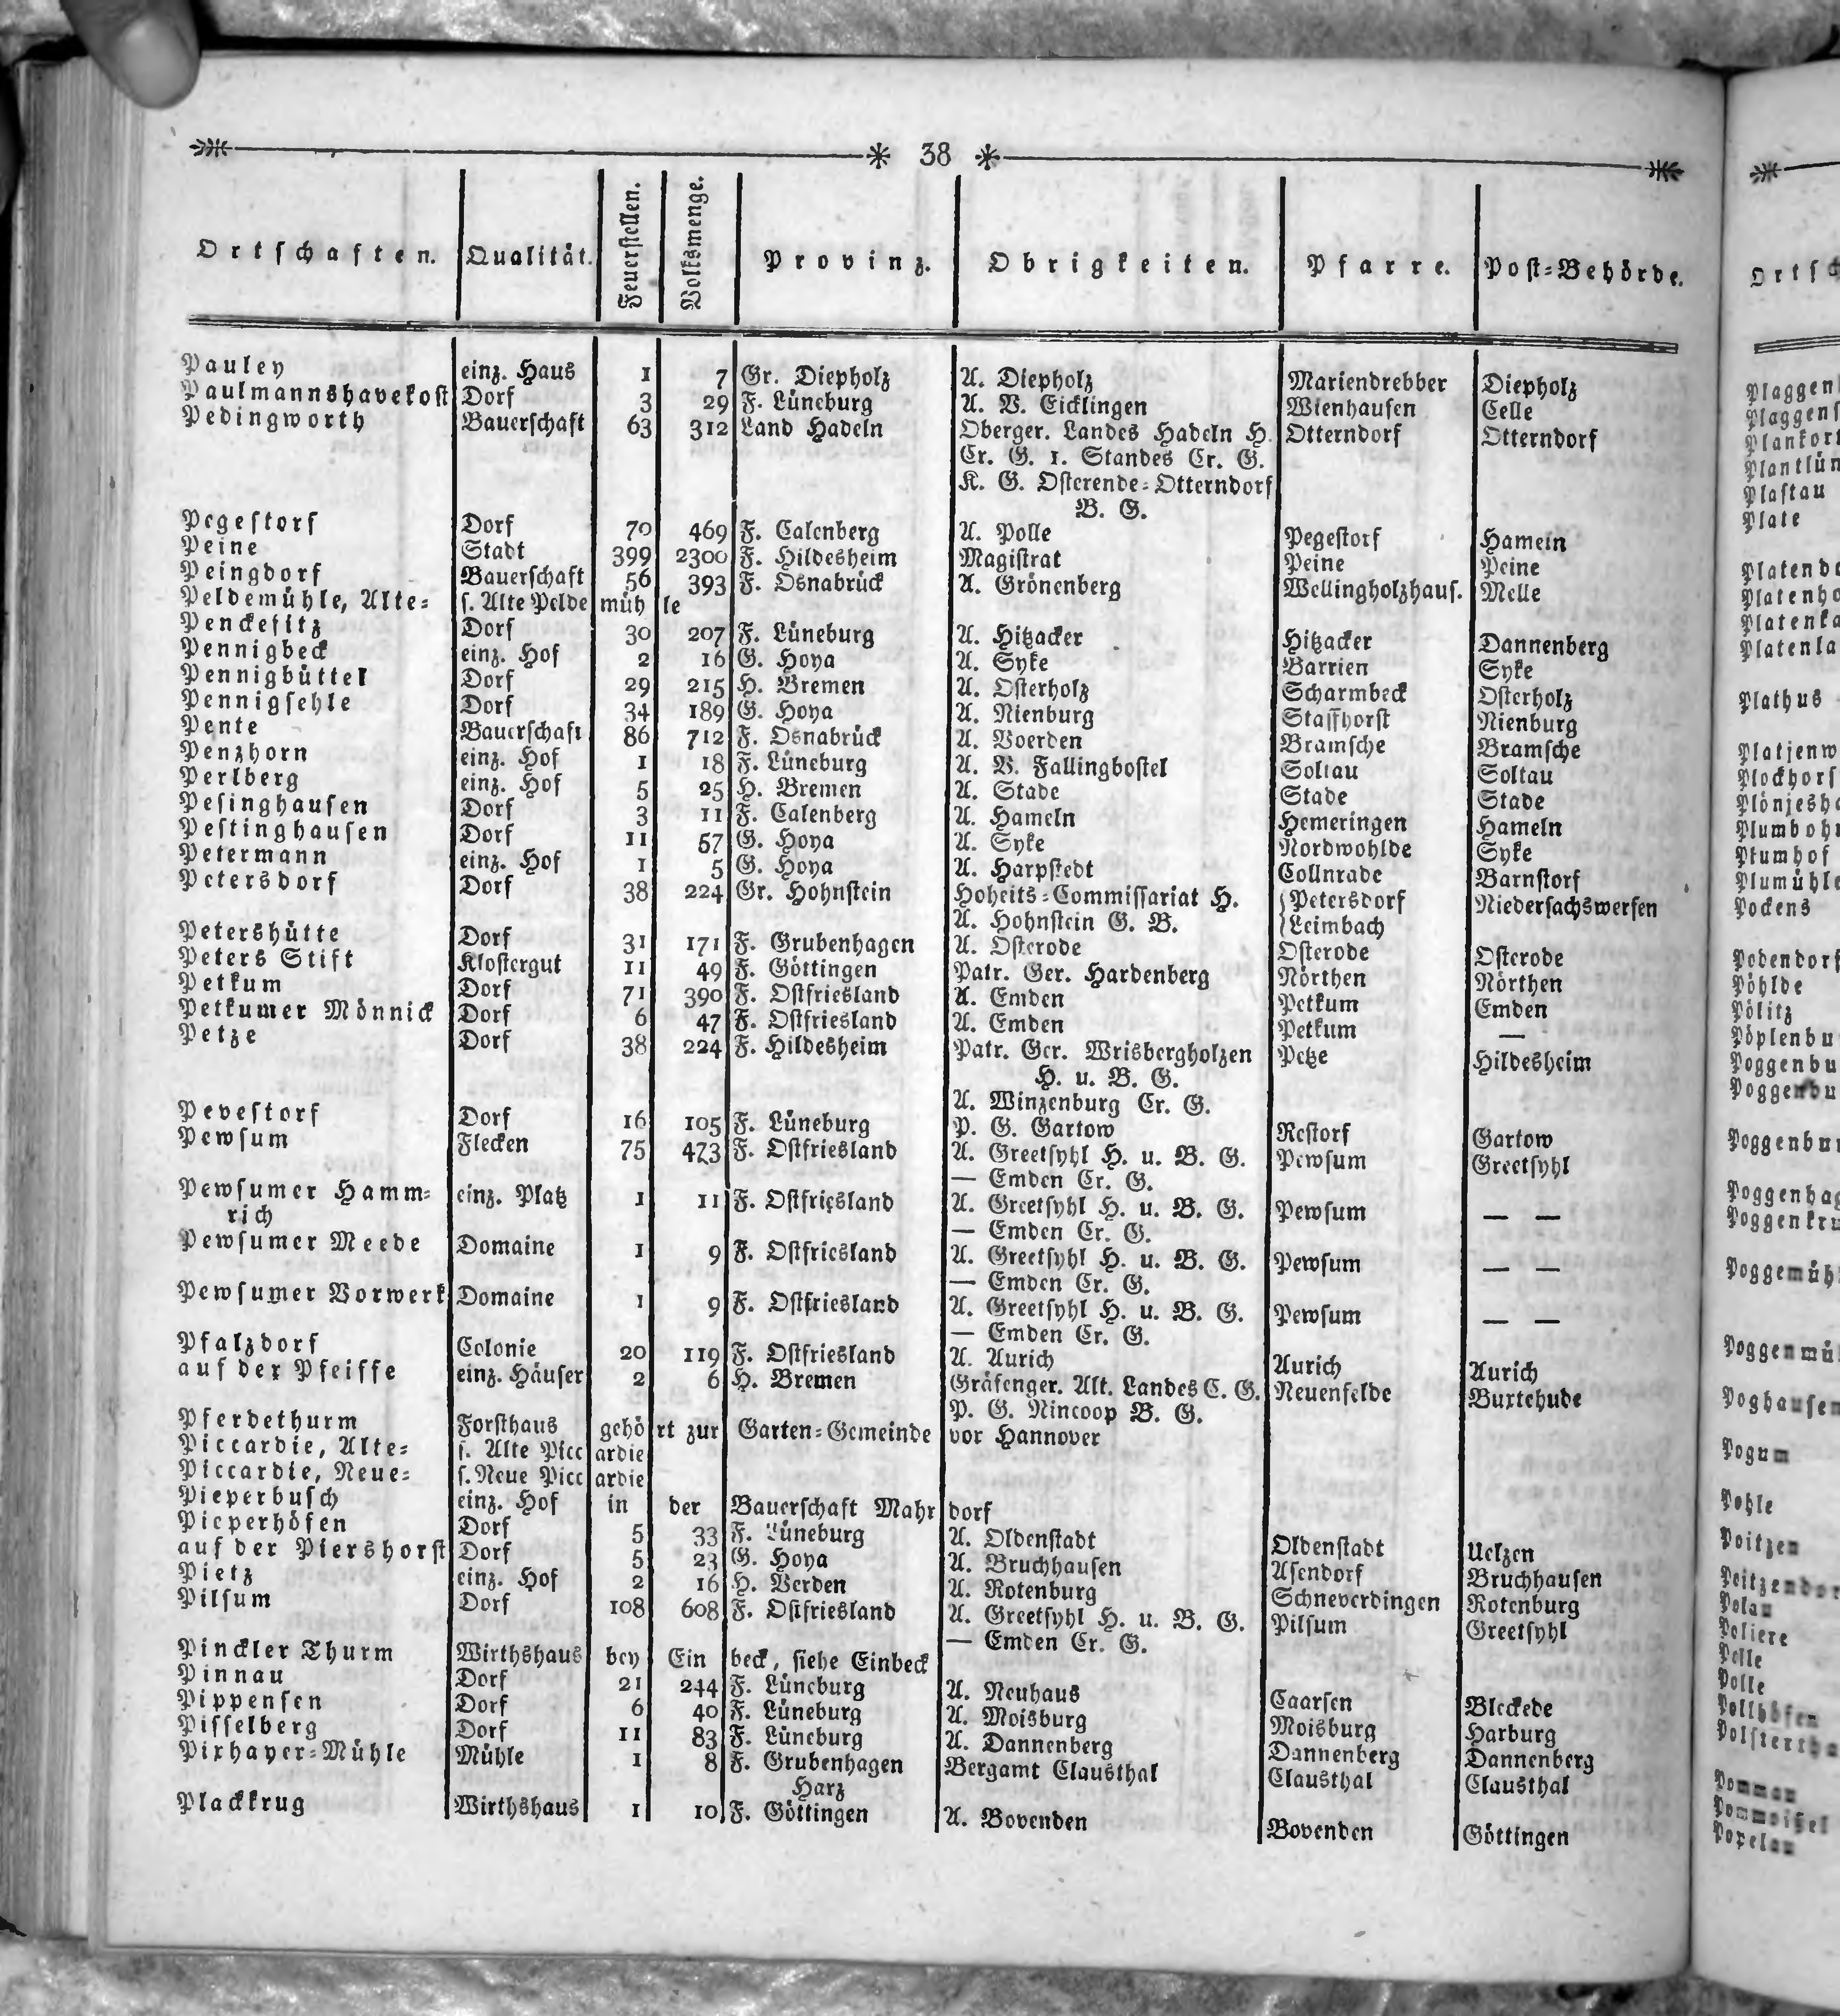 38
Ortſchaften. Qualität. Feuerſtellen. Volksmenge. Provinz. Obrigkeiten. Pfarre. Poſt=Behörde.
Pauley einz. Haus 1 7 Gr. Diepholz A. Diepholz Mariendrebber Diepholz
Paulmannshavekoſt Dorf 3 29 F. Lüneburg A. V. Eicklingen Wienhauſen Celle
Pedingworth Bauerſchaft 63 312 Land Hadeln Oberger. Landes Hadeln H. Otterndorf Otterndorf
Cr. G. 1. Standes Cr. G.
K. G. Oſterende=Otterndorf
B. G.
Pegeſtorf Dorf 70 469 F. Calenberg A. Polle Pegeſtorf Hameln
Peine Stadt 399 2300 F. Hildesheim Magiſtrat Peine Peine
Peingdorf Bauerſchaft 56 393 F. Osnabrück A. Grönenberg Wellingholzhauſ. Melle
Peldemühle, Alte= ſ. Alte Peldemühle
Penckefitz Dorf 30 207 F. Lüneburg A. Hitzacker Hitzacker Dannenberg
Pennigbeck einz. Hof 2 16 G. Hoya A. Syke Barrien Syke
Pennigbüttel Dorf 29 215 H. Bremen A. Oſterholz Scharmbeck Oſterholz
Pennigſehle Dorf 34 189 G. Hoya A. Nienburg Staffhorſt Nienburg
Pente Bauerſchaft 86 712 F. Osnabrück A. Voerden Bramſche Bramſche
Penzhorn einz. Hof 1 18 F. Lüneburg A. V. Fallingboſtel Soltau Soltau
Perlberg einz. Hof 5 25 H. Bremen A. Stade Stade Stade
Peſinghauſen Dorf 3 11 F. Calenberg A. Hameln Hemeringen Hameln
Peſtinghauſen Dorf 11 57 G. Hoya A. Syke Nordwohlde Syke
Petermann einz. Hof 1 5 G. Hoya A. Harpſtedt Collnrade Barnſtorf
Petersdorf Dorf 38 224 Gr. Hohnſtein Hoheits=Commiſſariat H. Petersdorf Niederſachswerfen
A. Hohnſtein G. B. Leimbach
Petershütte Dorf 31 171 F. Grubenhagen A. Oſterode Oſterode Oſterode
Peters Stift Kloſtergut 11 49 F. Göttingen Patr. Ger. Hardenberg Nörthen Nörthen
Petkum Dorf 71 390 F. Oſtfriesland A. Emden Petkum Emden
Petkumer Mönnick Dorf 6 47 F. Oſtfriesland A. Emden Petkum —
Petze Dorf 38 224 F. Hildesheim Patr. Ger. Wrisbergholzen Petze Hildesheim
H. u. B. G.
A. Winzenburg Cr. G.
Peveſtorf Dorf 16 105 F. Lüneburg P. G. Gartow Reſtorf Gartow
Pewſum Flecken 75 473 F. Oſtfriesland A. Greetſyhl H. u. B. G. Pewſum Greetſyhl
— Emden Cr. G.
Pewſumer Hamm= einz. Platz 1 11 F. Oſtfriesland A. Greetſyhl H. u. B. G. Pewſum — —
rich — Emden Cr. G.
Pewſumer Meede Domaine 1 9 F. Oſtfriesland A. Greetſyhl H. u. B. G. Pewſum — —
— Emden Cr. G.
Pewſumer Vorwerk Domaine 1 9 F. Oſtfriesland A. Greetſyhl H. u. B. G. Pewſum — —
— Emden Cr. G.
Pfalzdorf Colonie 20 119 F. Oſtfriesland A. Aurich Aurich Aurich
auf der Pfeiffe einz. Häuſer 2 6 H. Bremen Gräfenger. Alt. Landes C. G. Neuenfelde Buxtehude
P. G. Nincoop B. G.
Pferdethurm Forſthaus gehört zur Garten=Gemeinde vor Hannover
Piccardie, Alte= ſ. Alte Piccardie
Piccardie, Neue= ſ. Neue Piccardie
Pieperbuſch einz. Hof in der Bauerſchaft Mahrdorf
Pieperhöfen Dorf 5 33 F. Lüneburg A. Oldenſtadt Oldenſtadt Uelzen
auf der Piershorſt Dorf 5 23 G. Hoya A. Bruchhauſen Aſendorf Bruchhauſen
Pietz einz. Hof 2 16 H. Verden A. Rotenburg Schneverdingen Rotenburg
Pilſum Dorf 108 608 F. Oſtfriesland A. Greetſyhl H. u. B. G. Pilſum Greetſyhl
— Emden Cr. G.
Pinckler Thurm Wirthshaus bey Einbeck, ſiehe Einbeck
Pinnau Dorf 21 244 F. Lüneburg A. Neuhaus Caarſen Bleckede
Pippenſen Dorf 6 40 F. Lüneburg A. Moisburg Moisburg Harburg
Piſſelberg Dorf 11 83 F. Lüneburg A. Dannenberg Dannenberg Dannenberg
Pixhayer=Mühle Mühle 1 8 F. Grubenhagen Bergamt Clausthal Clausthal Clausthal
Harz
Plackkrug Wirthshaus 1 10 F. Göttingen A. Bovenden Bovenden Göttingen
Plate
Plathus
Pockens
Pöhlde
Pölitz
Pogum
Pohle
Poitzen
Polle
Polle